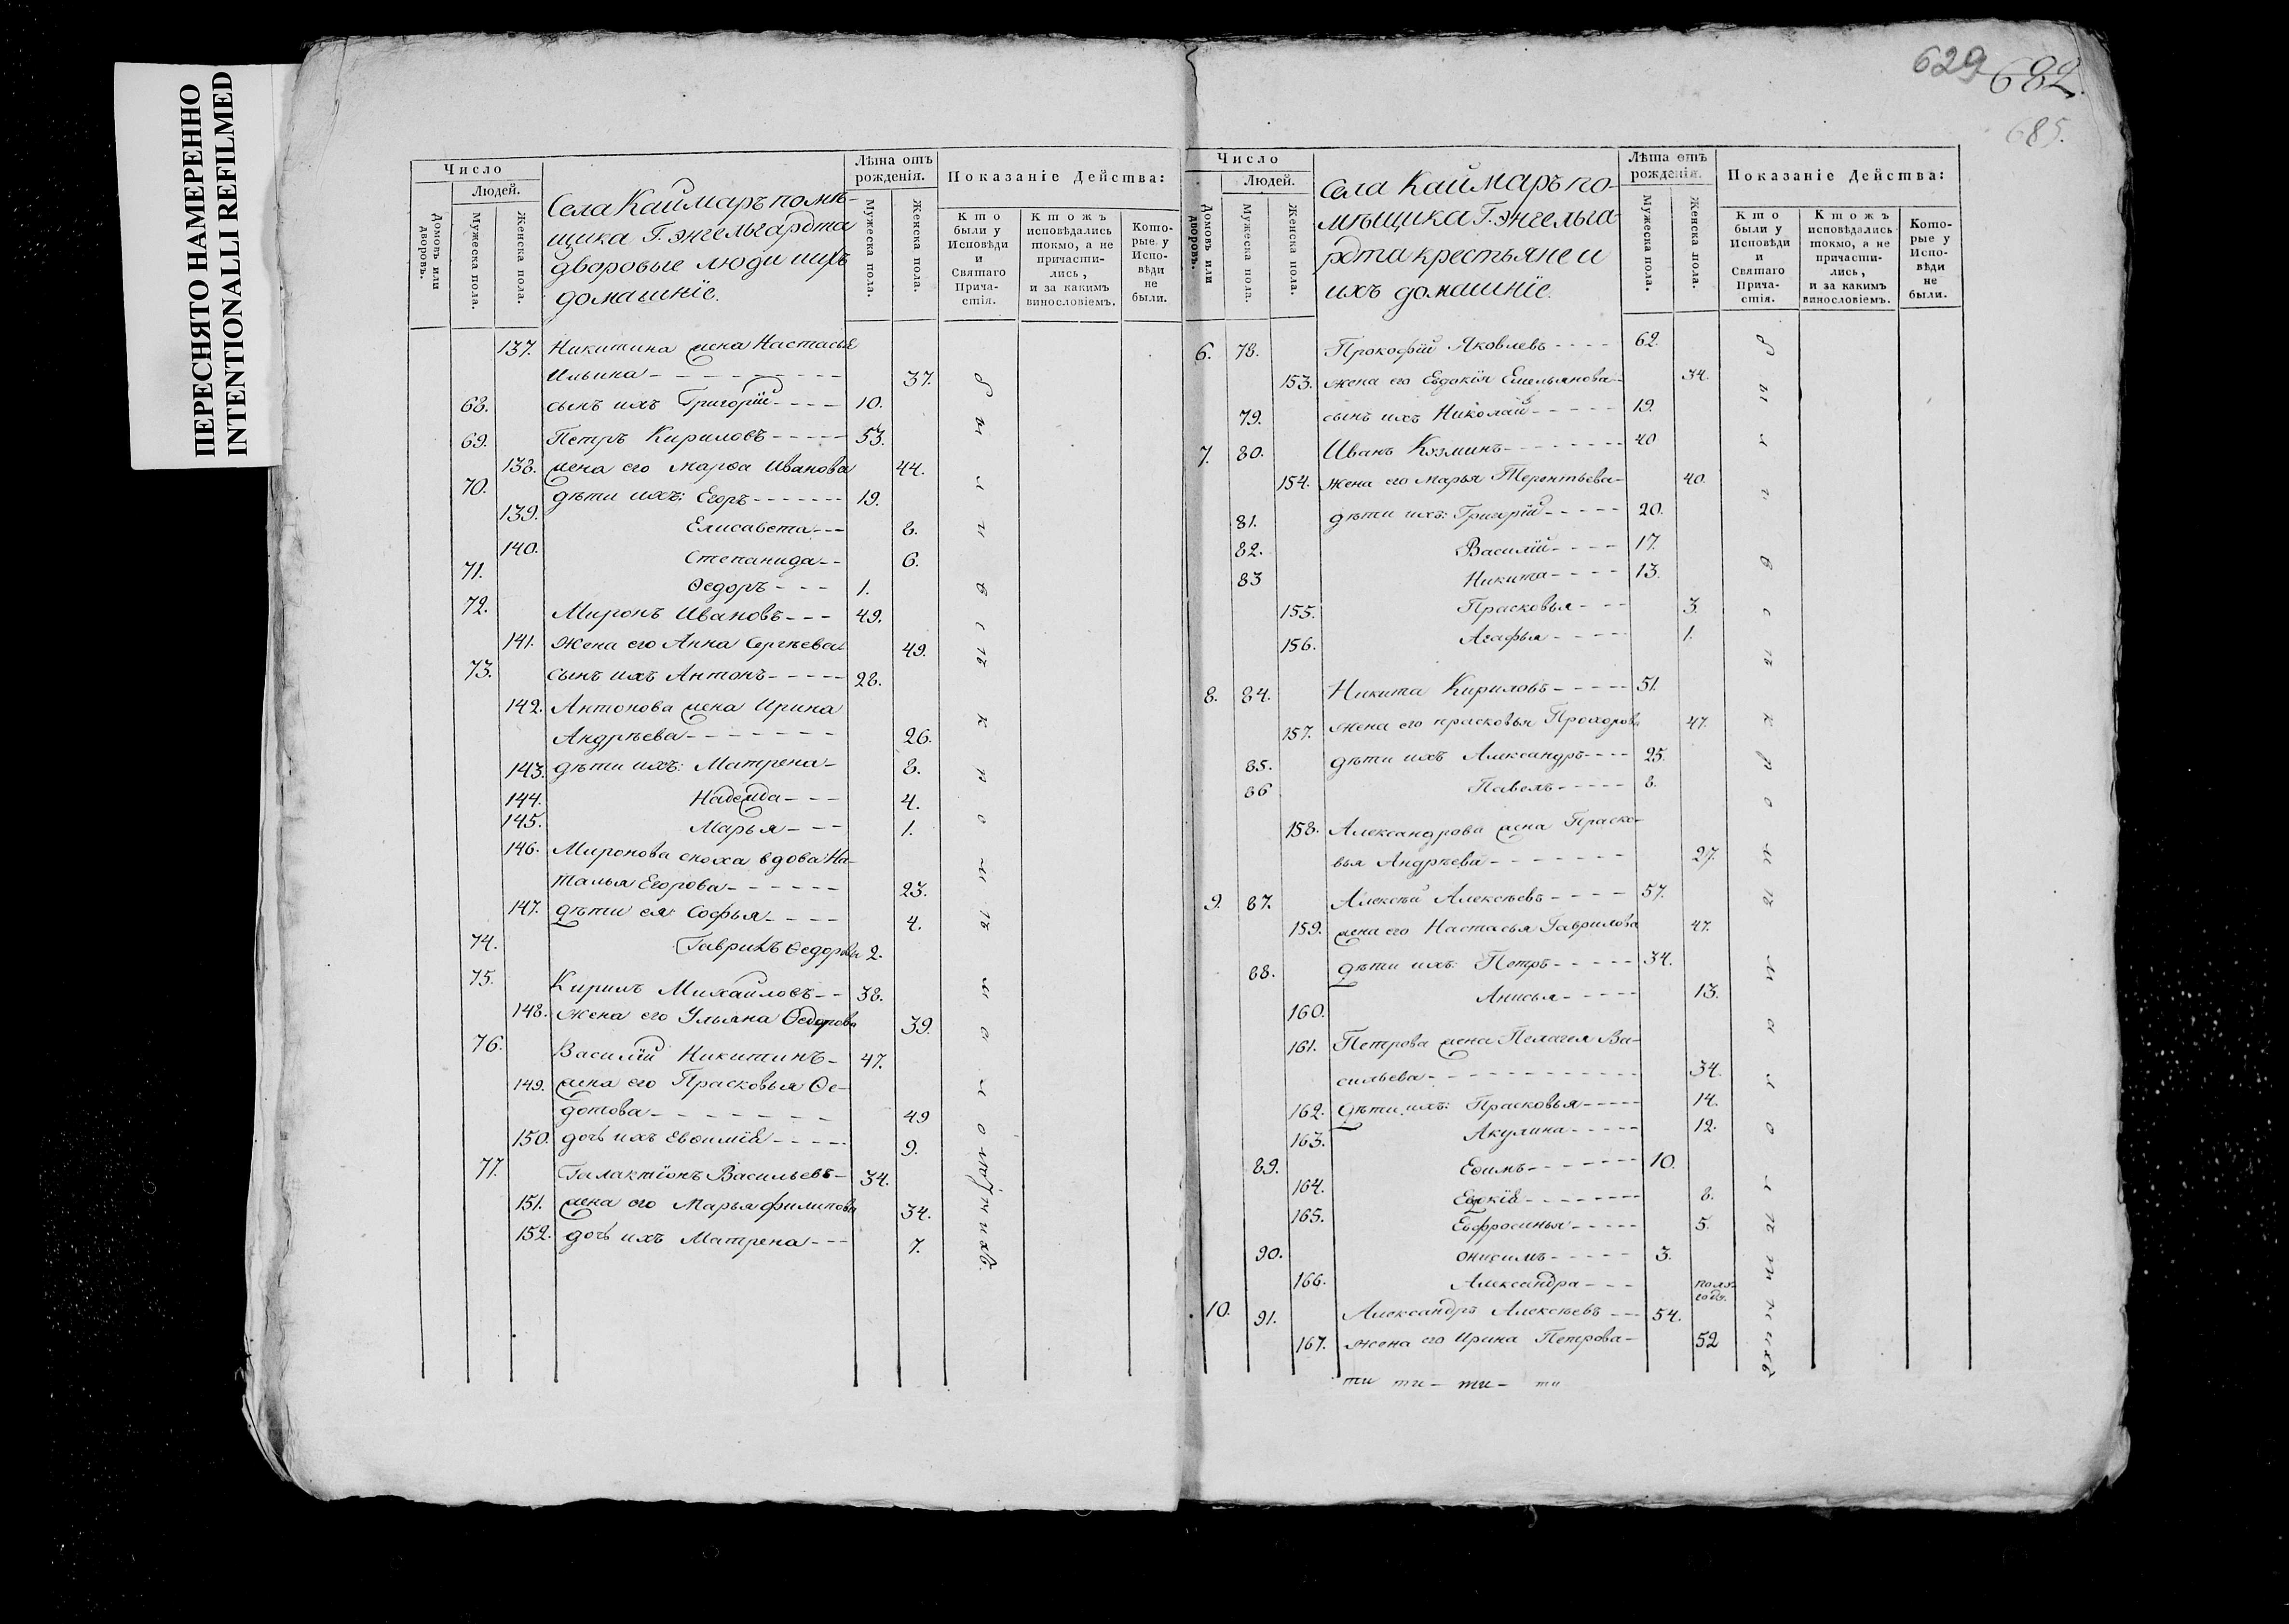 ПЕРЕСНЯТО НАМЕРЕННО
INTENTIONALLI REFILMED
629 682.
685.
Число
Людей.
Домовъ или дворовъ.
Мужеска пола.
Женска пола.
Села Каймаръ помѣ-
щика Г. Энгельгардта
дворовые люди ихъ
домашніе.
Лѣта отъ рожденія.
Мужеска пола.
Женска пола.
Показаніе Действа:
Кто были у Исповѣди и Святаго Прича-стія.
Ктожъ исповѣдались токмо, а не причасти-лись, и за какимъ винословіемъ.
Кото-рые у Испо-вѣди не были.
137. Никитина жена Настасья
Ильина - 37.
68. сынъ ихъ Григорій - 10.
69. Петръ Кириловъ - 53.
138. жена его Марѳа Иванова 44.
70. дѣти ихъ: Егоръ - 19.
139. Елисавета - 8.
140. Степанида - 6.
71. Ѳедоръ - 1.
72. Миронъ Ивановъ - 49.
141. Жена его Анна Сергѣева 49.
73. сынъ ихъ Антонъ - 28.
142. Антонова жена Ирина
Андрѣева - 26.
143. дѣти ихъ: Матрена - 8.
144. Надежда - 4.
145. Марья - 1.
146. Миронова сноха вдова На-
талья Егорова - 23.
147. дѣти ея: Софья - 4.
74. Гаврилъ Ѳедоровъ 2.
75. Кирилъ Михайловъ - 38.
148. жена его Ульяна Ѳедорова 39.
76. Василій Никитинъ - 47.
149. жена его Прасковья Ѳе-
дотова - 49
150. дочь ихъ Евѳимія - 9.
77. Галактіонъ Васильевъ - 34.
151. жена его Марья Филипова 34.
152. дочь ихъ Матрена - 7.
Число
Людей.
Домовъ или дворовъ.
Мужеска пола.
Женска пола.
Села Каймаръ по-
мѣщика Г. Энгельга
рдта крестьяне и
ихъ домашніе.
Лѣта отъ рожденія.
Мужеска пола.
Женска пола.
Показаніе Действа:
Кто были у Исповѣди и Святаго Прича-стія.
Ктожъ исповѣдались токмо, а не причасти-лись, и за какимъ винословіемъ.
Кото-рые у Испо-вѣди не были.
6. 78. Прокофій Яковлевъ - 62.
153. жена его Евдокія Емельянова - 34.
79. сынъ ихъ Николай - 19.
7. 80. Иванъ Козминъ - 40
154. Жена его Марья Терентьева - 40.
81. дѣти ихъ: Григорій - 20.
82. Василій - 17.
83 Никита - 13.
155. Прасковья - 3.
156. Агафья - 1.
8. 84. Никита Кириловъ - 51.
157. жена его Прасковья Прохорова 47.
85. дѣти ихъ Александръ - 25.
86 Павелъ - 8.
158. Александрова жена Праско-
вья Андрѣева - 27.
9. 87. Алексѣй Алексѣевъ - 57.
159. жена его Настасья Гаврилова 47.
88. дѣти ихъ: Петръ - 34.
160. Анисья - 13.
161. Петрова жена Пелагея Ва-
сильева - 34.
162. дѣти ихъ: Прасковья - 14.
163. Акулина - 12.
89. Еѳимъ - 10.
164. Евдокія - 8.
165. Евфросинья - 5.
90. Онисимъ - 3.
166. Александра - полу-
года.
10. 91. Александръ Алексѣевъ - 54.
167. жена его Ирина Петрова - 52
ти ти - ти - ти